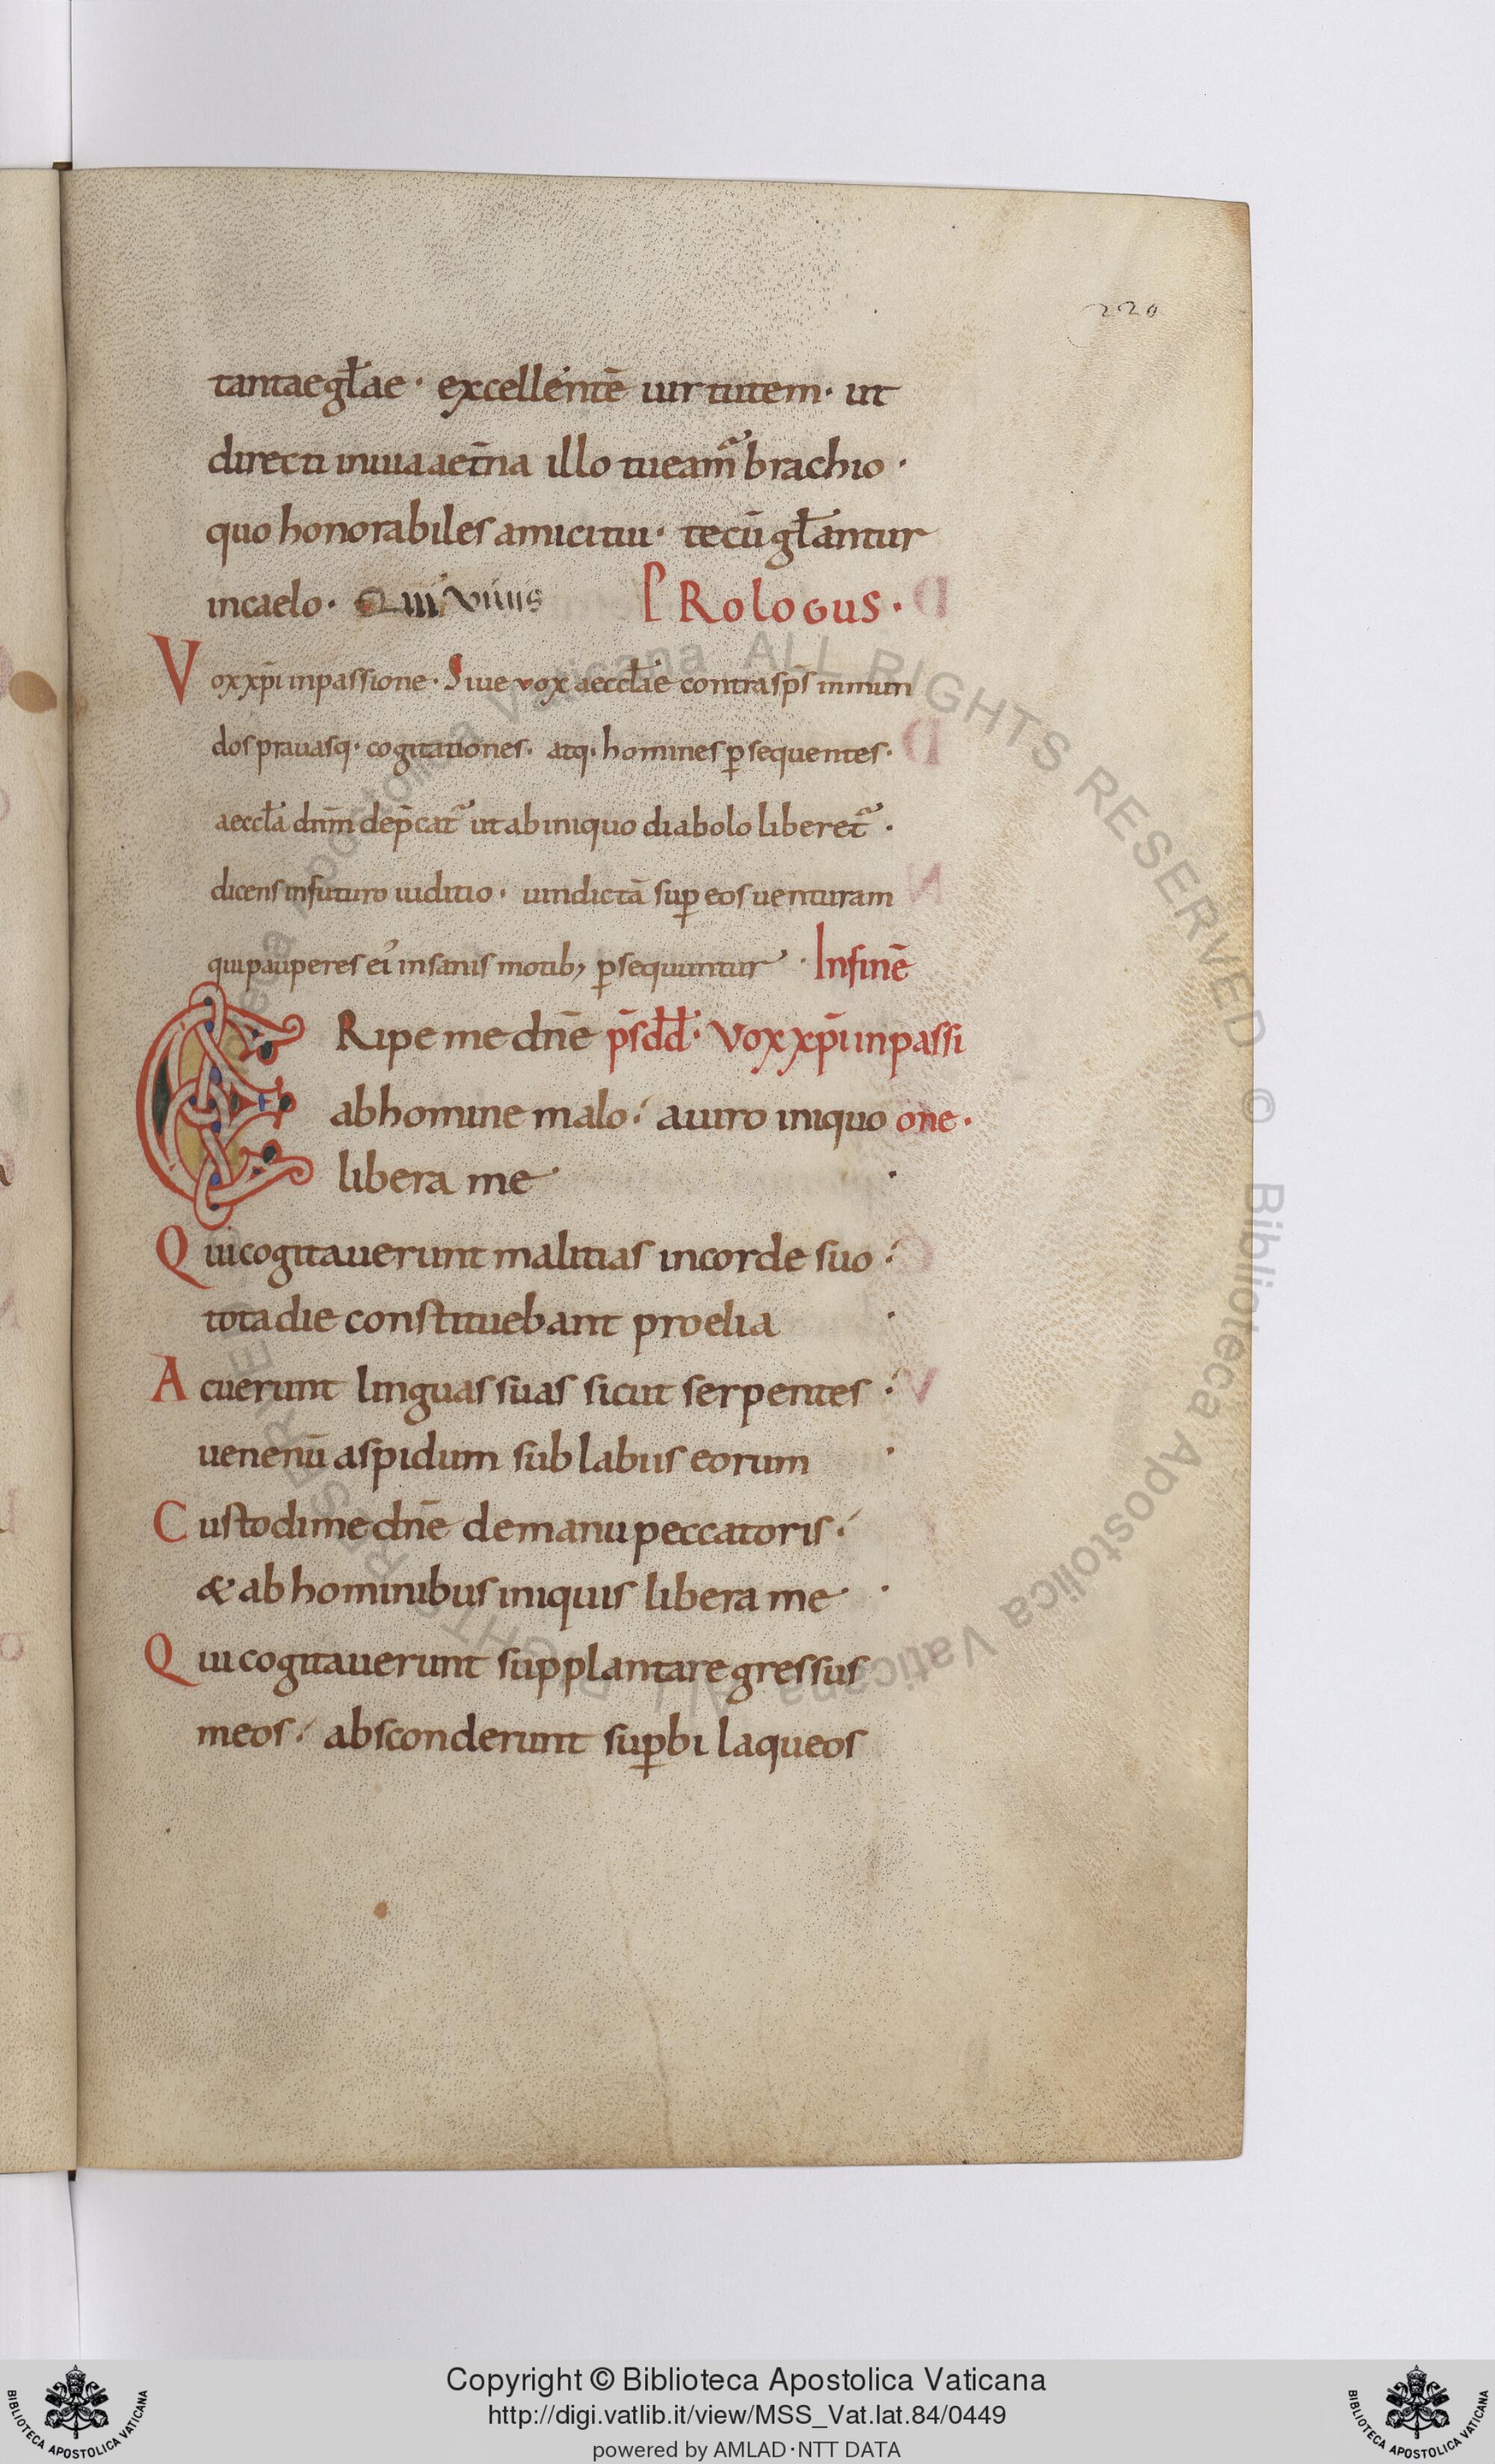 220
tantae gl̄ae · excellentē uirtutem · ut
directi inuia aet̄na illo tueam᷑ brachio ·
quo honorabiles amici tui · tecū gl̄antur
in caelo · Qui viuis PRologus ·
Vox xp̄i in passione · Siue vox aeccl̄ae contra sp̄s inmun
dos prauasq · cogitationes · atq · homines ꝑsequentes ·
aeccl̄a dn̄m dep̄cat᷑ ut ab iniquo diabolo liberet᷑ ·
dicens in futuro iuditio · uindictā suꝑ eos uenturam
qui pauperes ei᾿ insanis motib; ꝑsequuntur · In finē
ERipe me dn̄e p̄s dd̄ · Vox xp̄i in passi
ab homine malo : a uiro iniquo one ·
libera me ·
Qui cogitauerunt malitias in corde suo :
tota die constituebant proelia ·
Acuerunt linguas suas sicut serpentes :
uenenū aspidum sub labiis eorum ·
Custodi me dn̄e de manu peccatoris :
& ab hominibus iniquis libera me ·
Qui cogitauerunt supplantare gressus
meos : absconderunt suꝑbi laqueos
ALL RIGHTS RESERVED © Biblioteca Apostolica Vaticana
Copyright © Biblioteca Apostolica Vaticana
http://digi.vatlib.it/view/MSS_Vat.lat.84/0449
powered by AMLAD·NTT DATA
BIBLIOTECA APOSTOLICA VATICANA
BIBLIOTECA APOSTOLICA VATICANA